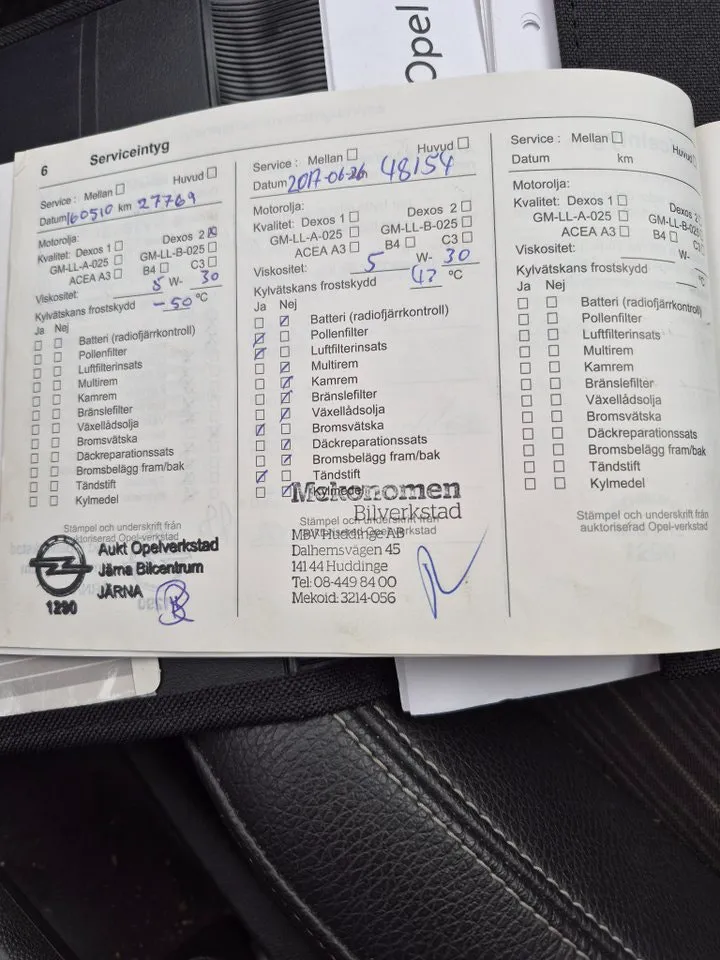 Opel
6 Serviceintyg
Service: Mellan Huvud
Datum 160510 km 27769
Motorolja:
Kvalitet: Dexos 1 Dexos 2
GM-LL-A-025 GM-LL-B-025
ACEA A3 B4 C3
Viskositet: 5 W- 30
Kylvätskans frostskydd -50 °C
Ja Nej
Batteri (radiofjärrkontroll)
Pollenfilter
Luftfilterinsats
Multirem
Kamrem
Bränslefilter
Växellådsolja
Bromsvätska
Däckreparationssats
Bromsbelägg fram/bak
Tändstift
Kylmedel
Stämpel och underskrift från
auktoriserad Opel-verkstad
Aukt Opelverkstad
Järna Bilcentrum
JÄRNA
1290
Service: Mellan Huvud
Datum 2017-06-26 km 48154
Motorolja:
Kvalitet: Dexos 1 Dexos 2
GM-LL-A-025 GM-LL-B-025
ACEA A3 B4 C3
Viskositet: 5 W- 30
Kylvätskans frostskydd °C
Ja Nej
Batteri (radiofjärrkontroll)
Pollenfilter
Luftfilterinsats
Multirem
Kamrem
Bränslefilter
Växellådsolja
Bromsvätska
Däckreparationssats
Bromsbelägg fram/bak
Tändstift
Kylmedel
Mekonomen
Bilverkstad
Stämpel och underskrift från
auktoriserad Opel-verkstad
MBV Huddinge AB
Dalhemsvägen 45
141 44 Huddinge
Tel: 08-449 84 00
Mekoid: 3214-056
Service: Mellan Huvud
Datum km
Motorolja:
Kvalitet: Dexos 1 Dexos 2
GM-LL-A-025 GM-LL-B-025
ACEA A3 B4 C3
Viskositet: W-
Kylvätskans frostskydd
Ja Nej
Batteri (radiofjärrkontroll)
Pollenfilter
Luftfilterinsats
Multirem
Kamrem
Bränslefilter
Växellådsolja
Bromsvätska
Däckreparationssats
Bromsbelägg fram/bak
Tändstift
Kylmedel
Stämpel och underskrift från
auktoriserad Opel-verkstad